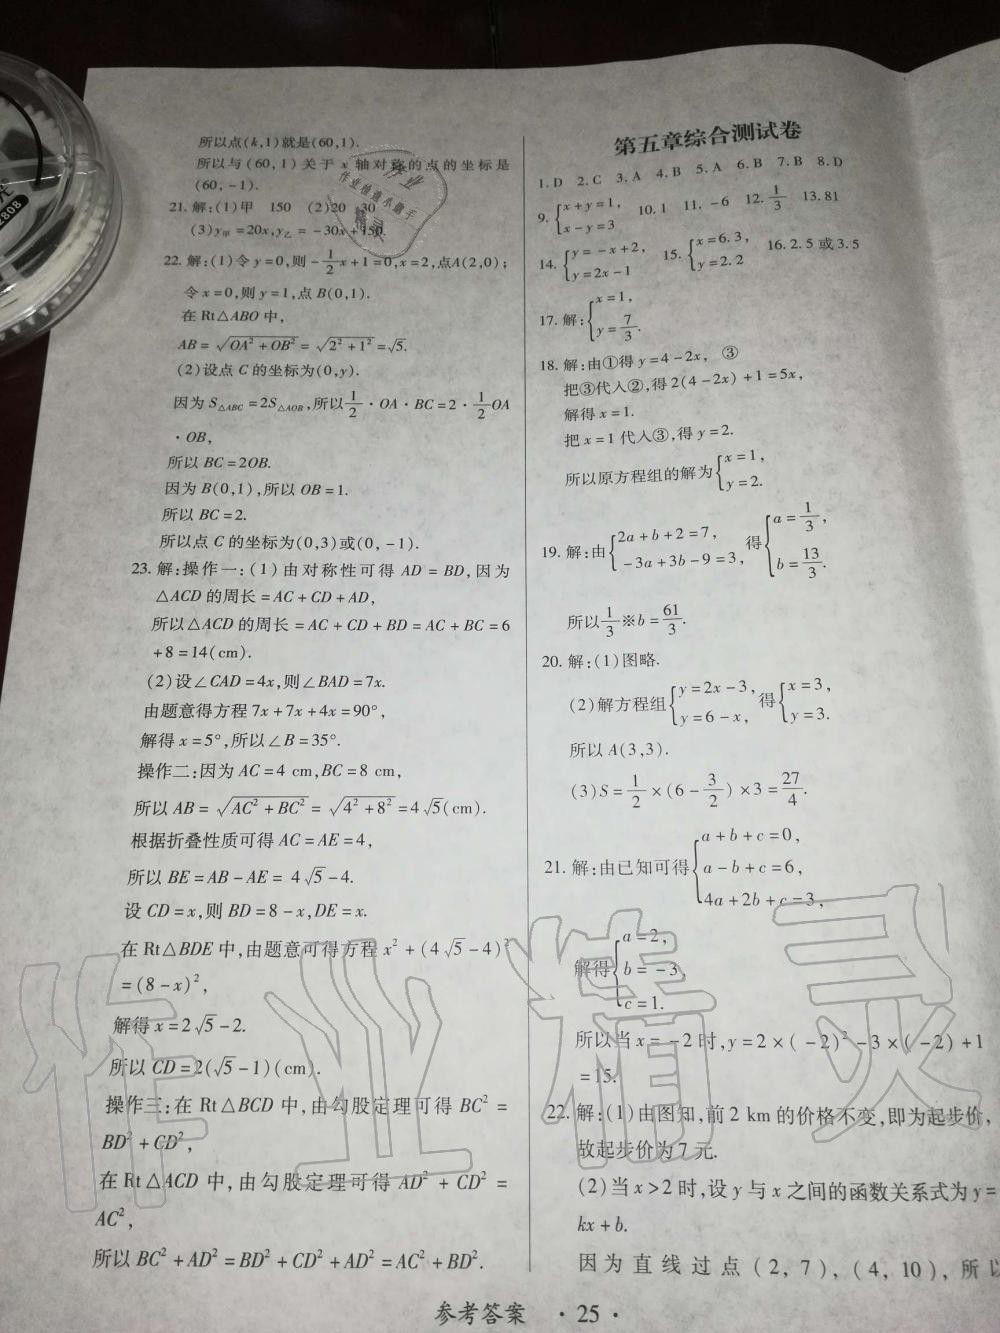 所以点(k,1)就是(60,1).
所以与(60,1)关于x轴对称的点的坐标是
(60,-1).
21.解:(1)甲 150 (2)20 30
(3)y甲=20x,y乙=-30x+150.
22.解:(1)令y=0,则-1/2x+1=0,x=2,点A(2,0);
令x=0,则y=1,点B(0,1).
在Rt△ABO中,
AB=√(OA²+OB²)=√(2²+1²)=√5.
(2)设点C的坐标为(0,y).
因为S△ABC=2S△AOB,所以1/2·OA·BC=2·1/2OA
·OB,
所以BC=2OB.
因为B(0,1),所以OB=1.
所以BC=2.
所以点C的坐标为(0,3)或(0,-1).
23.解:操作一:(1)由对称性可得AD=BD,因为
△ACD的周长=AC+CD+AD,
所以△ACD的周长=AC+CD+BD=AC+BC=6
+8=14(cm).
(2)设∠CAD=4x,则∠BAD=7x.
由题意得方程7x+7x+4x=90°,
解得x=5°,所以∠B=35°.
操作二:因为AC=4 cm,BC=8 cm,
所以AB=√(AC²+BC²)=√(4²+8²)=4√5(cm).
根据折叠性质可得AC=AE=4,
所以BE=AB-AE=4√5-4.
设CD=x,则BD=8-x,DE=x.
在Rt△BDE中,由题意可得方程x²+(4√5-4)²
=(8-x)²,
解得x=2√5-2.
所以CD=2(√5-1)(cm).
操作三:在Rt△BCD中,由勾股定理可得BC²=
BD²+CD²,
在Rt△ACD中,由勾股定理可得AD²+CD²=
AC²,
所以BC²+AD²=BD²+CD²+AD²=AC²+BD².
第五章综合测试卷
1.D 2.C 3.A 4.B 5.A 6.B 7.B 8.D
9.{x+y=1, x-y=3 10.1 11.-6 12.1/3 13.81
14.{y=-x+2, y=2x-1 15.{x=6.3, y=2.2 16.2.5或3.5
17.解:{x=1, y=7/3.
18.解:由①得y=4-2x, ③
把③代入②,得2(4-2x)+1=5x,
解得x=1.
把x=1代入③,得y=2.
所以原方程组的解为{x=1, y=2.
19.解:由{2a+b+2=7, -3a+3b-9=3, 得{a=1/3, b=13/3.
所以1/3※b=61/3.
20.解:(1)图略.
(2)解方程组{y=2x-3, y=6-x, 得{x=3, y=3.
所以A(3,3).
(3)S=1/2×(6-3/2)×3=27/4.
21.解:由已知可得{a+b+c=0, a-b+c=6, 4a+2b+c=3,
解得{a=2, b=-3 c=1.
所以当x=-2时,y=2×(-2)²-3×(-2)+1
=15.
22.解:(1)由图知,前2 km的价格不变,即为起步价,
故起步价为7元.
(2)当x>2时,设y与x之间的函数关系式为y=
kx+b.
因为直线过点(2,7),(4,10),所以
参考答案 ·25·
作业精灵
作业检查小助手